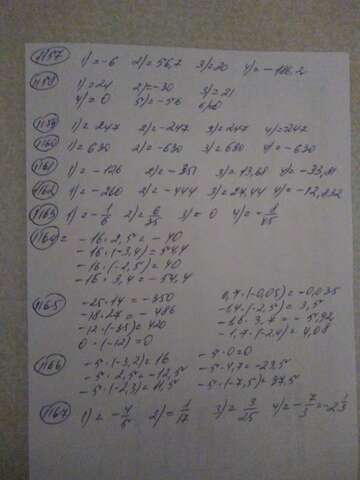 1157 1)=-6 2)=56,7 3)=20 4)=-186,2
1158 1)=21 2)=-30 3)=21
4)=0 5)=-56 6)=0
1159 1)=247 2)=-247 3)=247 4)=247
1160 1)=630 2)=-630 3)=630 4)=-630
1161 1)=-126 2)=-351 3)=13,68 4)=-33,21
1162 1)=-260 2)=-444 3)=24,44 4)=-12,832
1163 1)=-1/6 2)=6/35 3)=0 4)=-8/45
1164= -16·2,5=-40
-16·(-3,4)=54,4
-16·(-2,5)=40
-16·3,4=-54,4
1165 -25·14=-350 0,7·(-0,05)=-0,035
-18·27=-486 -1,4·(-2,5)=3,5
-12·(-35)=420 -1,6·3,7=-5,92
0·(-12)=0 -1,7·(-2,4)=4,08
1166 -5·(-3,2)=16 -5·0=0
-5·2,5=-12,5 -5·4,7=-23,5
-5·(-2,3)=11,5 -5·(-7,5)=37,5
1167 1)=-4/5 2)=1/17 3)=3/25 4)=-7/3=-2 1/3